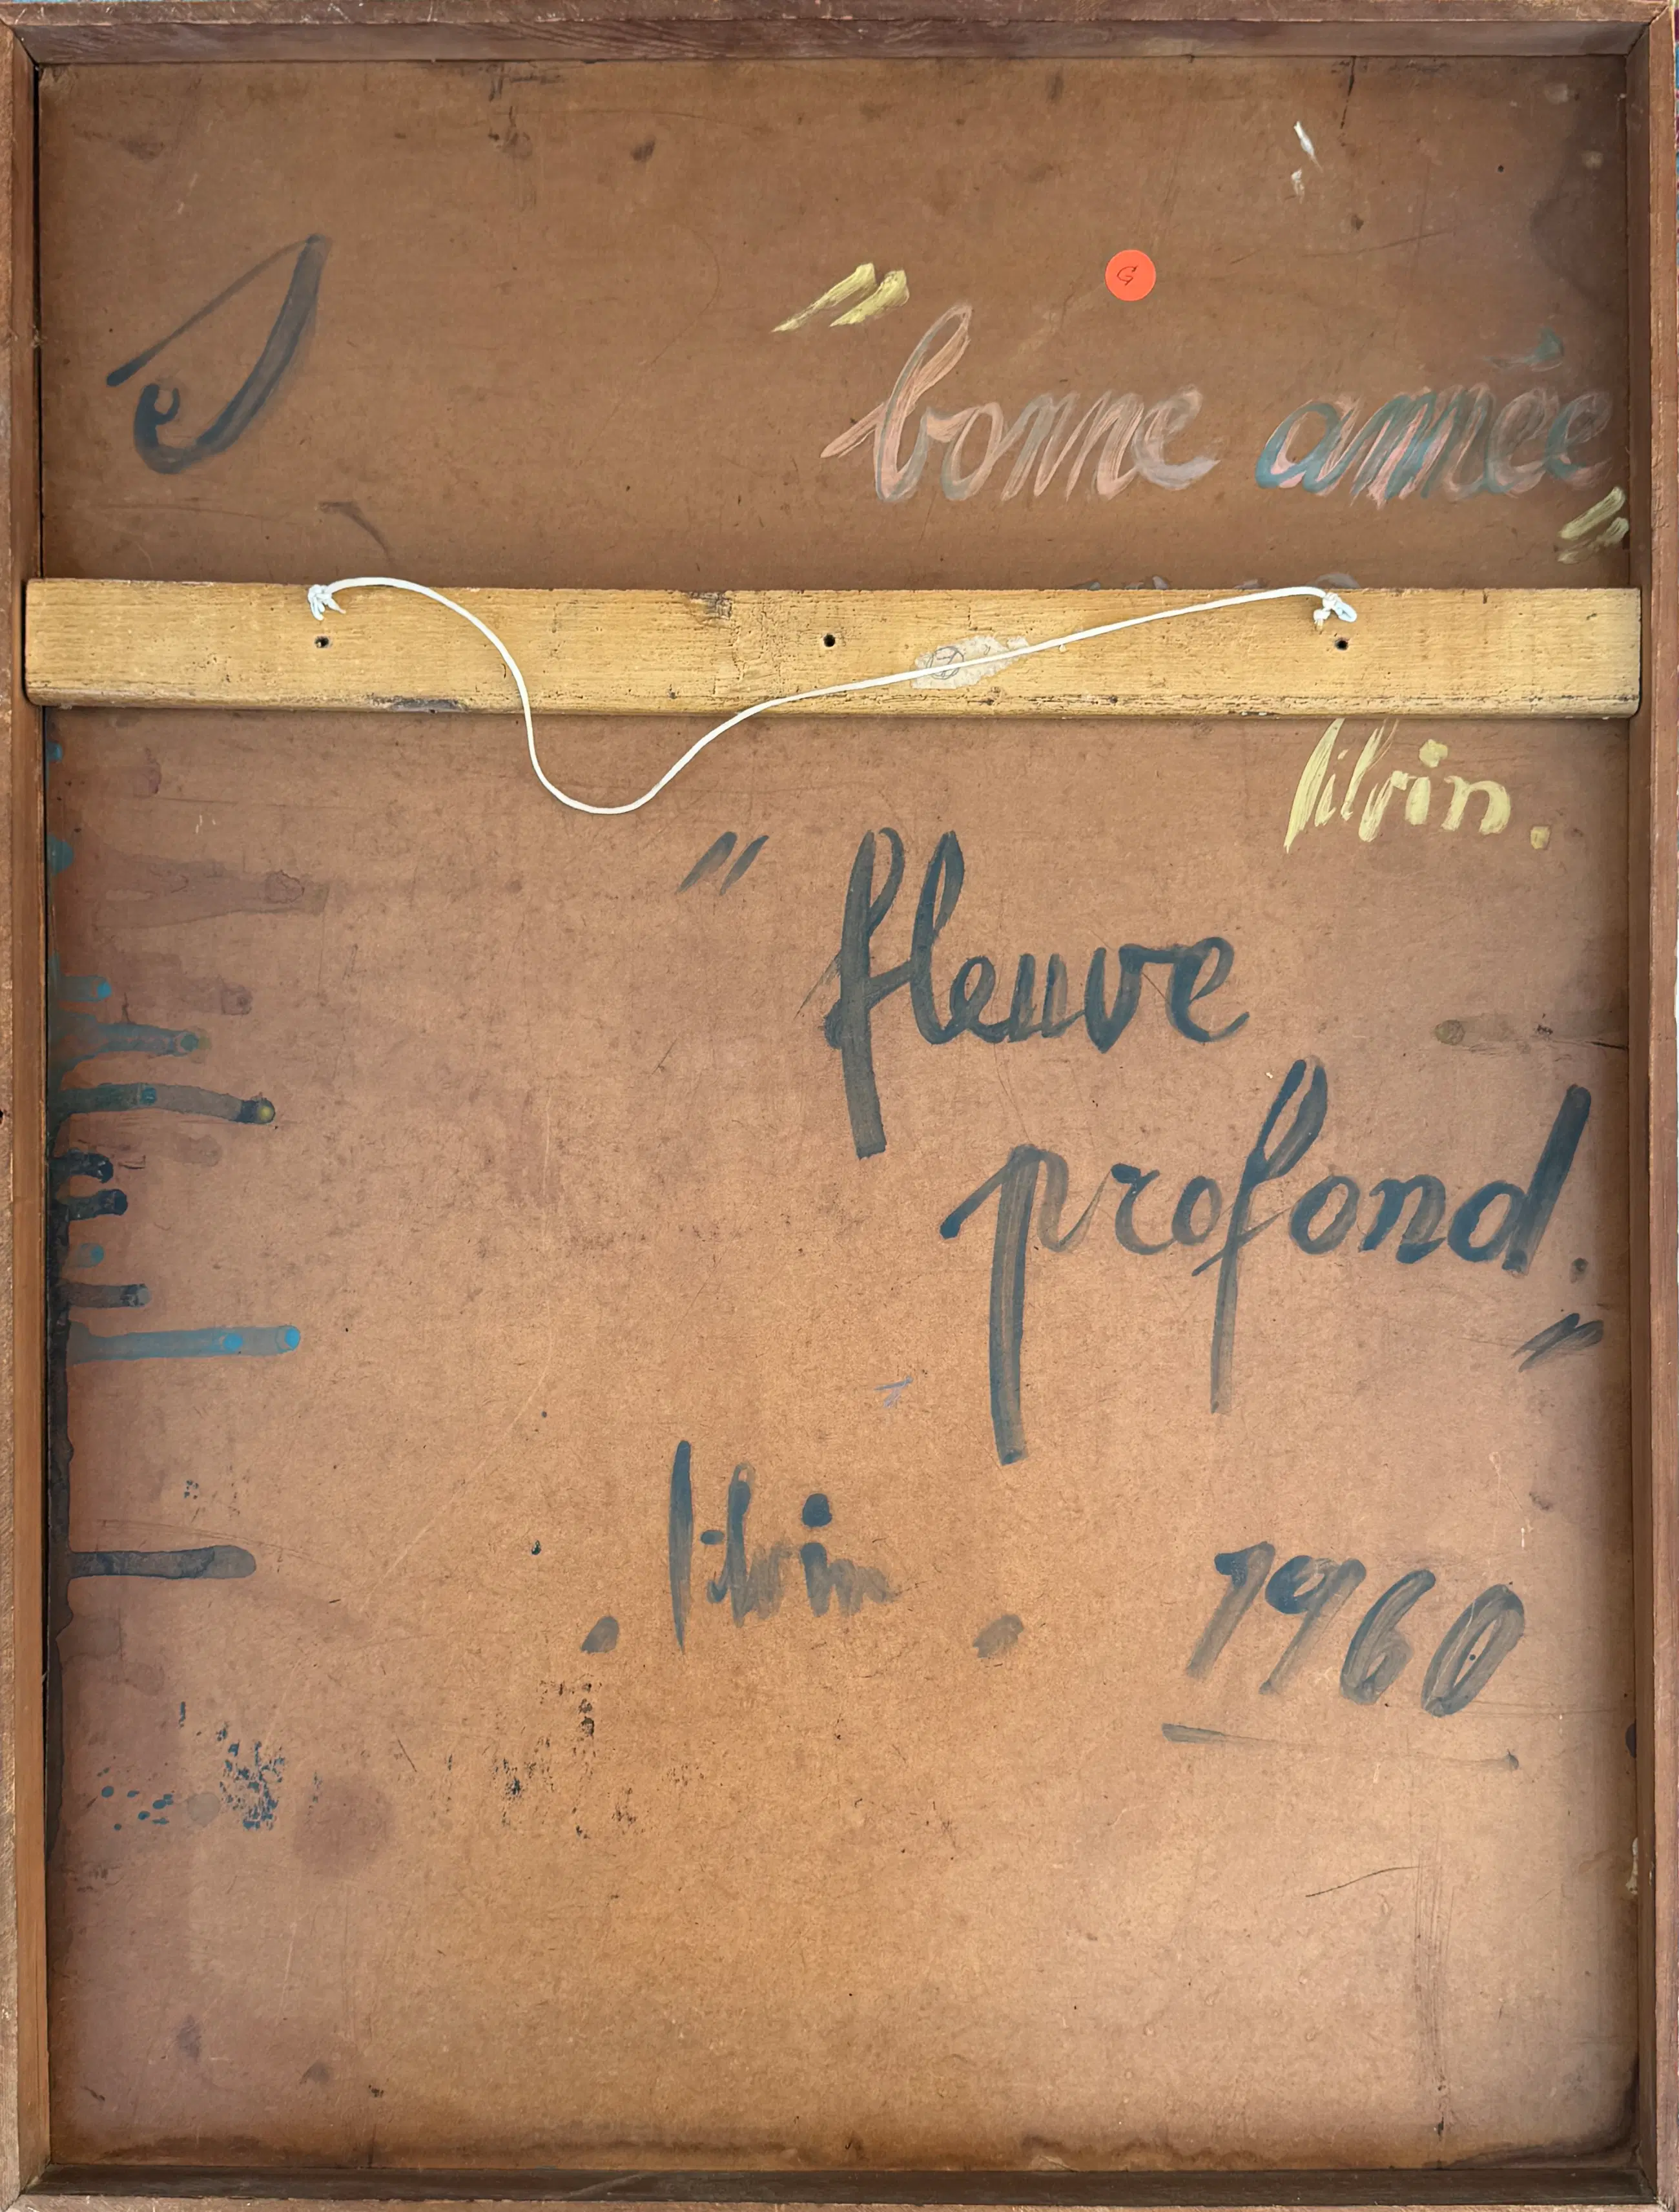 G
"bonne année"
7
lilvin.
"fleuve
profond."
. lilvin .
1960